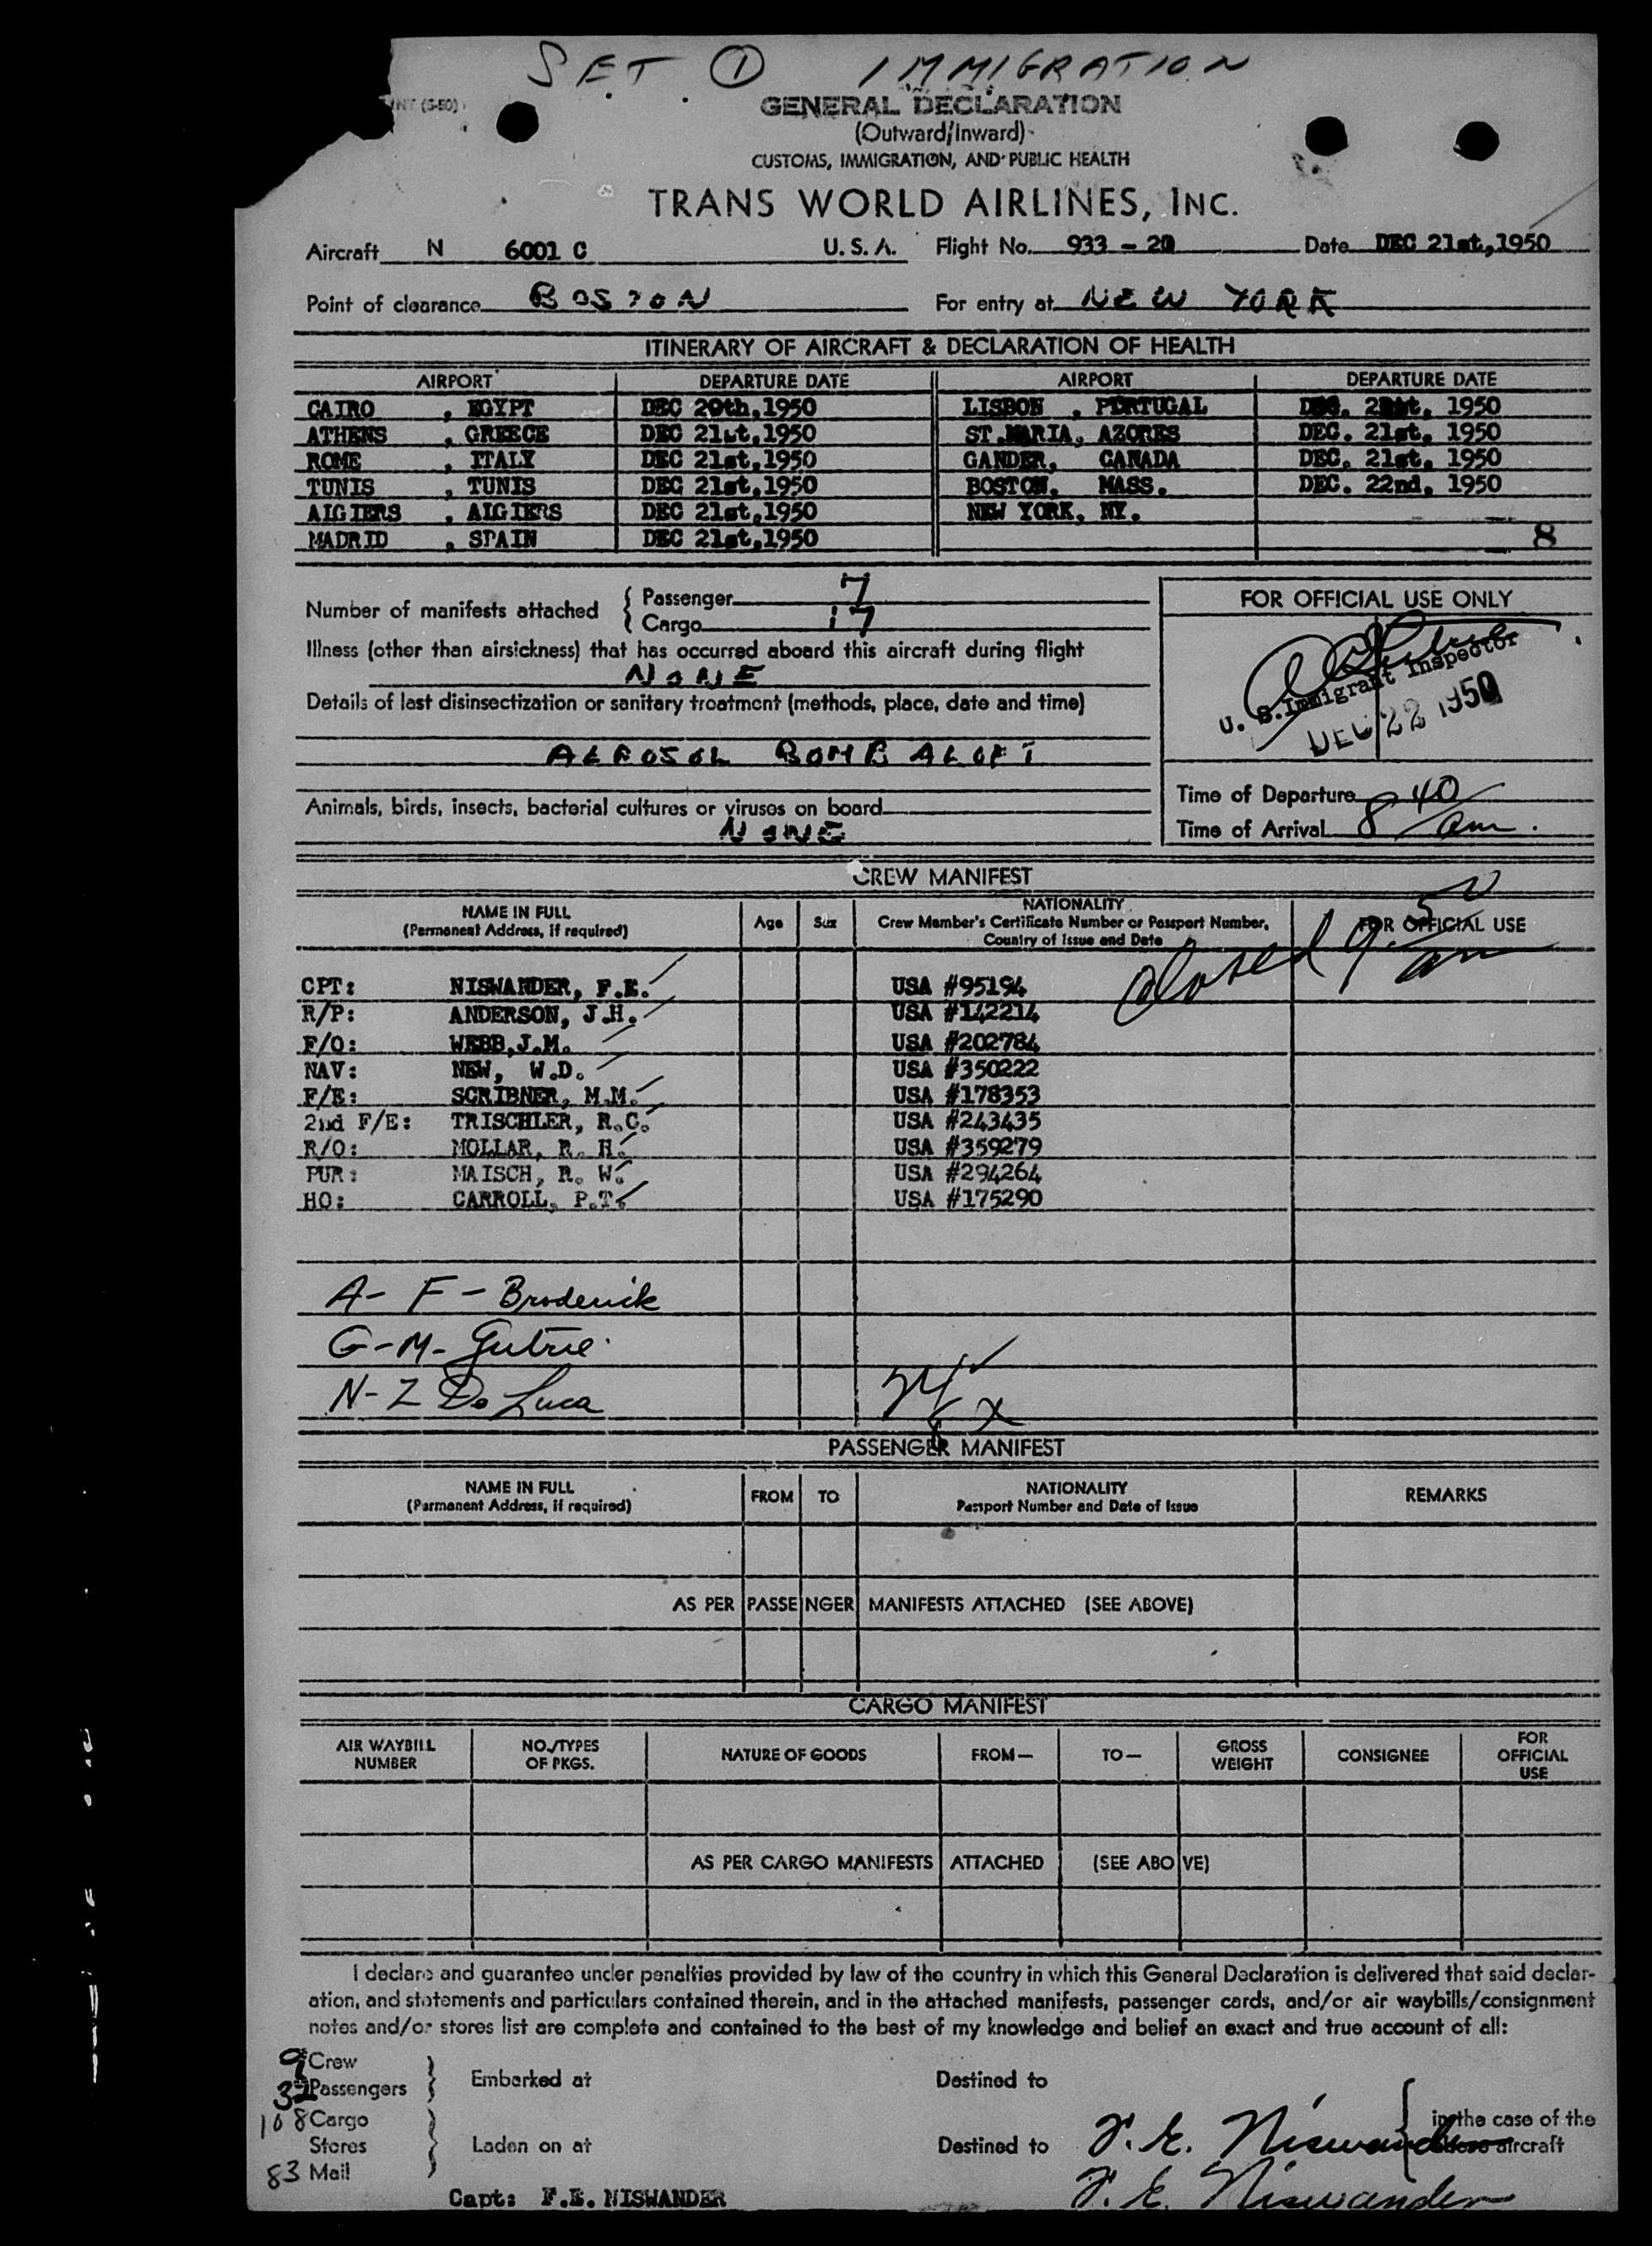 SET ① IMMIGRATION
(5-50)
GENERAL DECLARATION
(Outward/Inward)
CUSTOMS, IMMIGRATION, AND PUBLIC HEALTH
TRANS WORLD AIRLINES, INC.
Aircraft N 6001 C U. S. A. Flight No. 933 - 20 Date DEC 21st,1950
Point of clearance BOSTON For entry at NEW YORK
ITINERARY OF AIRCRAFT & DECLARATION OF HEALTH
AIRPORT DEPARTURE DATE AIRPORT DEPARTURE DATE
CAIRO , EGYPT DEC 20th,1950 LISBON , PORTUGAL DEC. 21st, 1950
ATHENS , GREECE DEC 21st,1950 ST.MARIA, AZORES DEC. 21st, 1950
ROME , ITALY DEC 21st,1950 GANDER, CANADA DEC. 21st, 1950
TUNIS , TUNIS DEC 21st,1950 BOSTON, MASS. DEC. 22nd, 1950
AIGIERS , AIGIERS DEC 21st,1950 NEW YORK, NY.
MADRID , SPAIN DEC 21st,1950 8
Number of manifests attached { Passenger 7
Cargo 17
FOR OFFICIAL USE ONLY
Illness (other than airsickness) that has occurred aboard this aircraft during flight
NONE
U. S. Immigrant Inspector
DEC 22 1950
Details of last disinsectization or sanitary treatment (methods, place, date and time)
AEROSOL BOMB ALOFT
Animals, birds, insects, bacterial cultures or viruses on board
NONE
Time of Departure
Time of Arrival 8 40 am.
CREW MANIFEST
NAME IN FULL
(Permanent Address, if required)
Age Sex
NATIONALITY
Crew Member's Certificate Number or Passport Number,
Country of Issue and Date
FOR OFFICIAL USE
Closed 9 50 am
CPT: NISWANDER, F.E. USA #95194
R/P: ANDERSON, J.H. USA #142214
F/O: WEBB,J.M. USA #202784
NAV: NEW, W.D. USA #350222
F/E: SCRIBNER, M.M. USA #178353
2nd F/E: TRISCHLER, R.C. USA #243435
R/O: MOLLAR, R. H. USA #359279
PUR: MAISCH, R. W. USA #294264
HO: CARROLL, P.T. USA #175290
A- F- Broderick
G-M- Gutrie
N-Z De Luca
PASSENGER MANIFEST
NAME IN FULL
(Permanent Address, if required)
FROM TO
NATIONALITY
Passport Number and Date of Issue
REMARKS
AS PER PASSENGER MANIFESTS ATTACHED (SEE ABOVE)
CARGO MANIFEST
AIR WAYBILL NUMBER NO./TYPES OF PKGS. NATURE OF GOODS FROM— TO— GROSS WEIGHT CONSIGNEE FOR OFFICIAL USE
AS PER CARGO MANIFESTS ATTACHED (SEE ABOVE)
I declare and guarantee under penalties provided by law of the country in which this General Declaration is delivered that said declar-
ation, and statements and particulars contained therein, and in the attached manifests, passenger cards, and/or air waybills/consignment
notes and/or stores list are complete and contained to the best of my knowledge and belief an exact and true account of all:
9 Crew
Passengers } Embarked at Destined to
108 Cargo in the case of the
Stores } Laden on at Destined to F. E. Niswander aircraft
83 Mail
Capt: F.E. NISWANDER F. E. Niswander